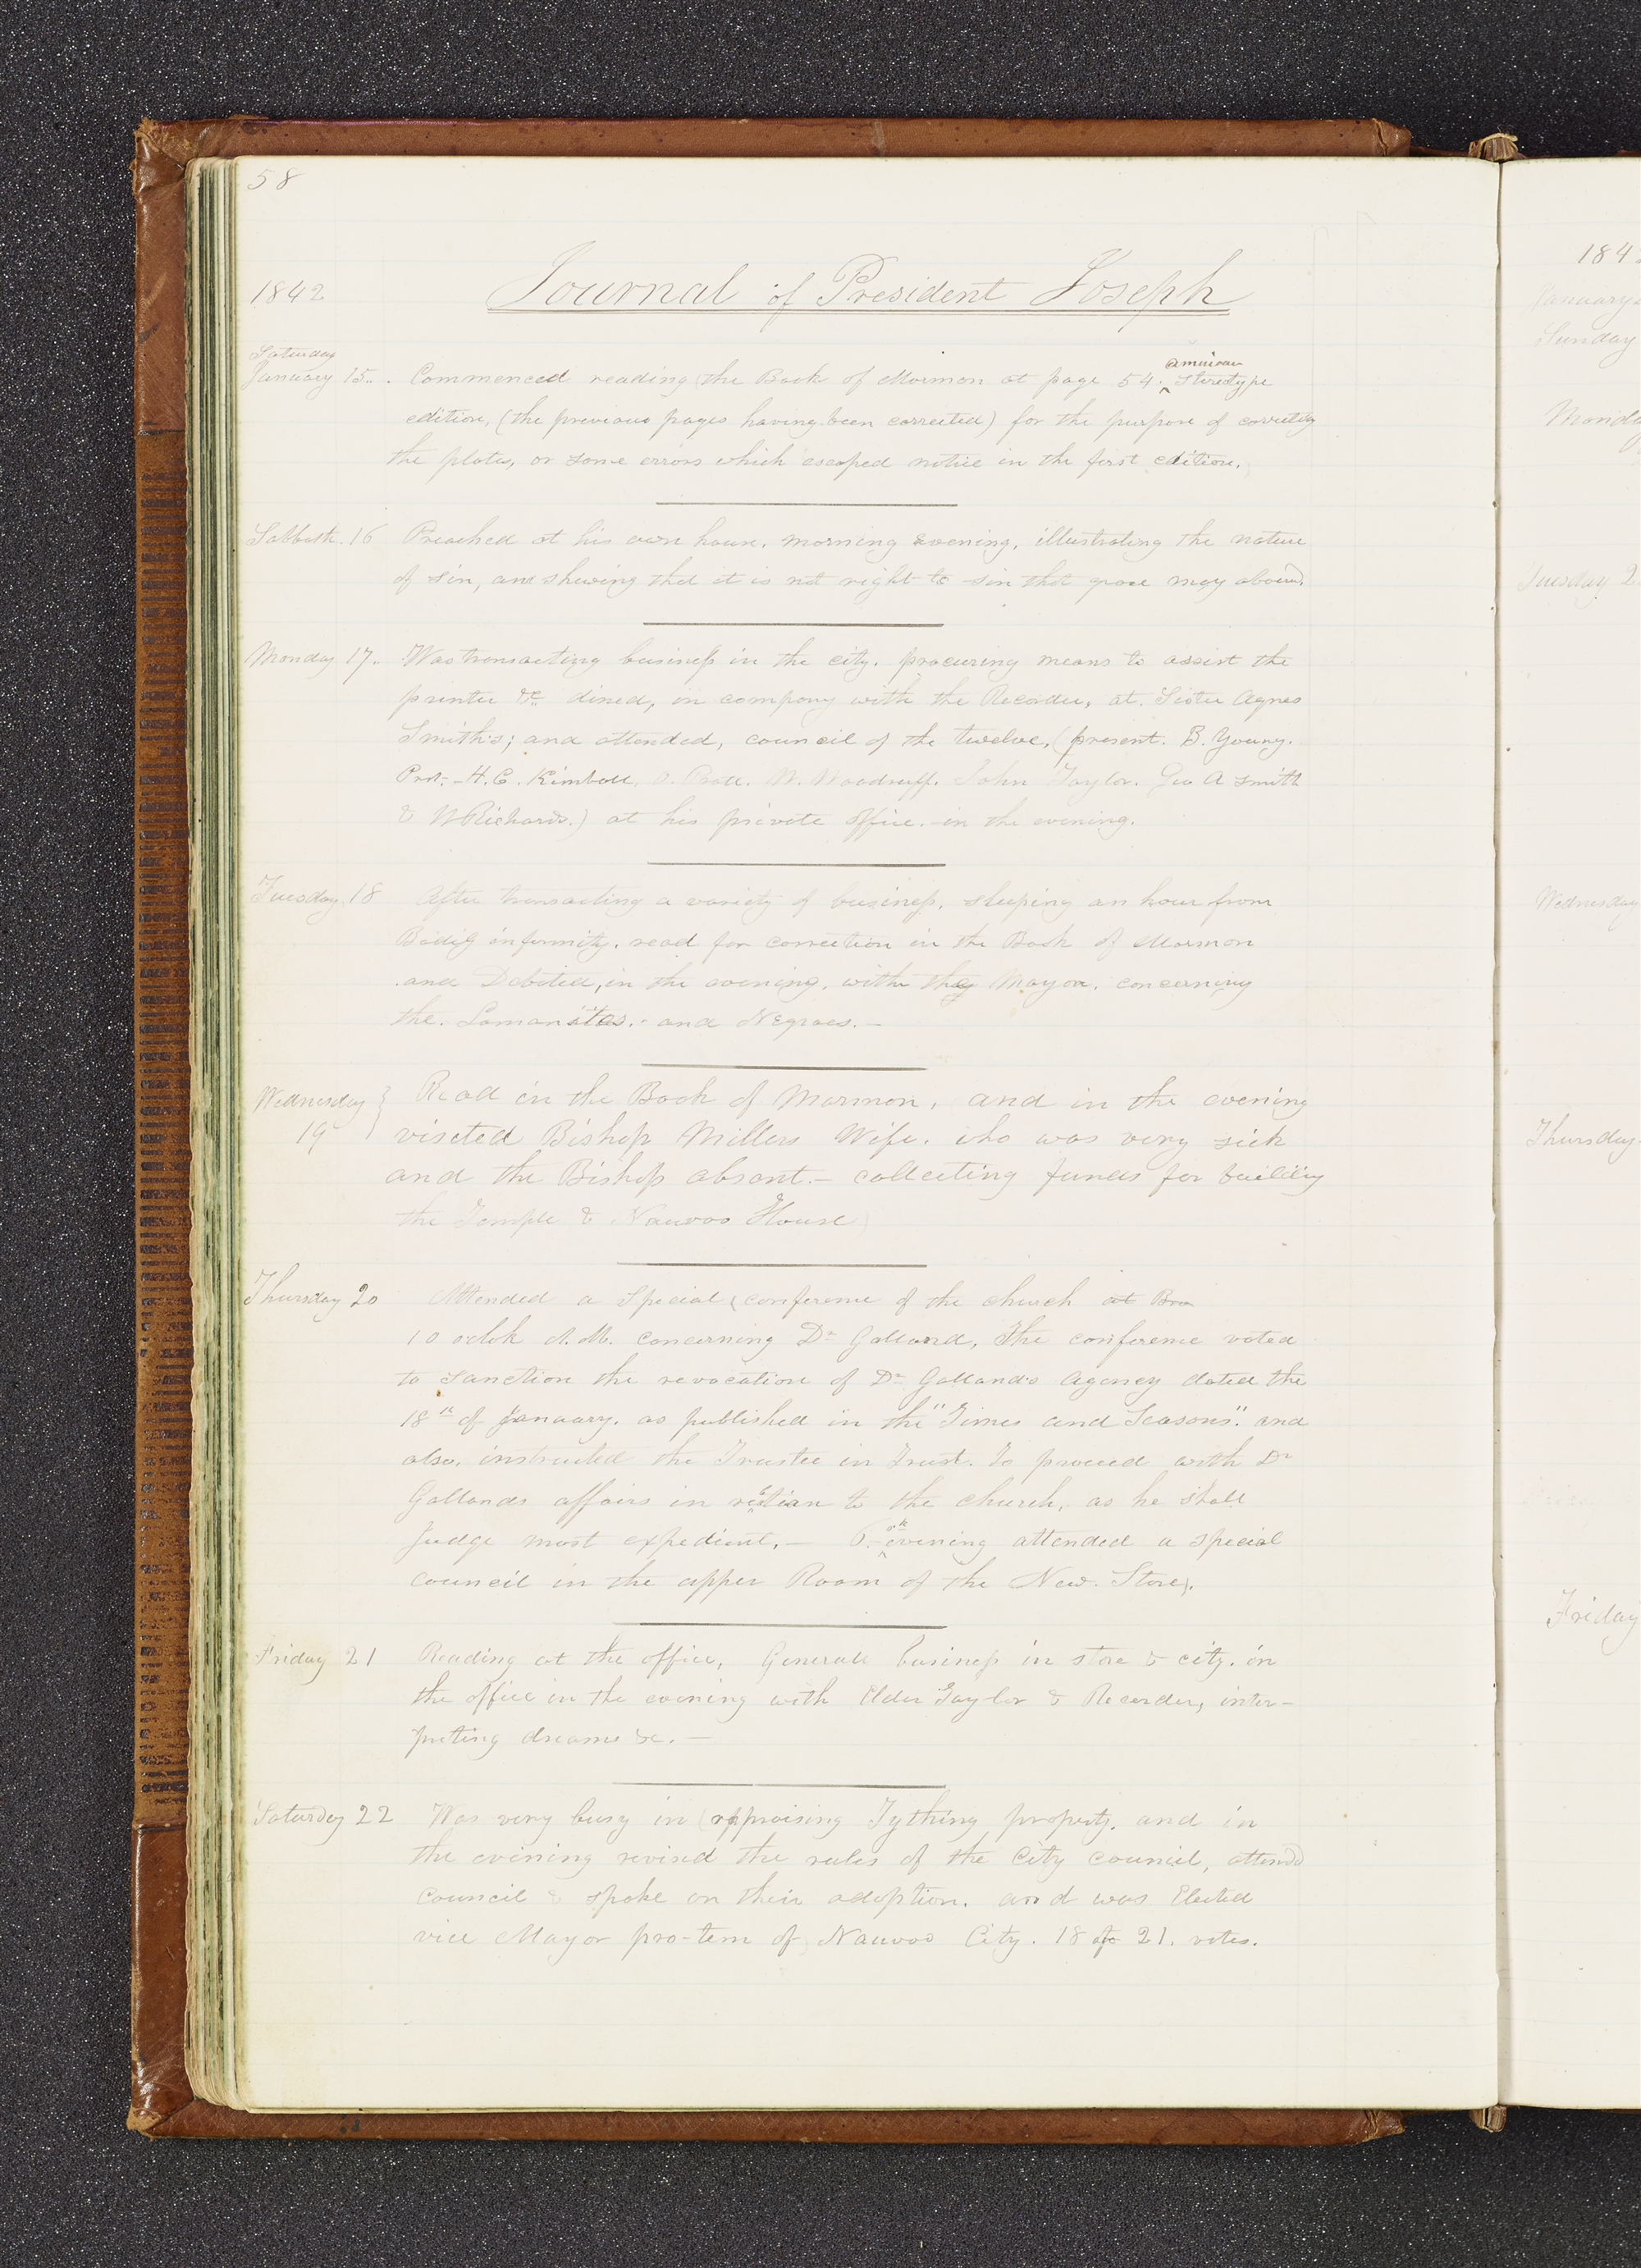 58
1842
Journal of President Joseph
Saturday
american
January 15.. . Commenced reading the Book of Mormon at page 54. ^ Stereotype
edition, (the previous pages having been corrected) for the purpose of correcting
the plates, or some errors which escaped notice in the first edition.
Sabbath. 16 Preached at his own house. morning & evening, illustrating the nature
of sin, and shewing that it is not right to sin that grace may abound.
Monday 17.. Was transacting business in the city. procuring means to assist the
printer &c dined, in company with the Recorder, at. Sister Agnes
Smith's; and attended, council of the twelve, (present. B. Young.
Prst.- H. C. Kimball, O. Pratt. W. Woodruff. John Taylor. Geo A Smith
& W Richards.) at his private office. in the evening.
Tuesday. 18 After transacting a variety of business, sleeping an hour from
Bodily infirmity. read for correction in the Book of Mormon
and Debated, in the evening, with the Mayor, concerning
the. Lamanites. and Negroes.—
Wednesday } Read in the Book of Mormon, and in the evening
19 visited Bishop Millers Wife. who was very sick
and the Bishop absent.— collecting funds for building
the Temple & Nauvoo House
Thursday 20 Attended a Special conference of the church at Bro
10 oclok A.M. concerning Dr Galland, The conference voted
to sanction the revocation of Dr Galland's Agency dated the
18th of January. as published in the "Times and Seasons". and
also. instructed the Trustee in Trust. To proceed with Dr
Gallands affairs in relation to the church, as he shall
Judge most expedient.— 6. o.k ^ evening attended a special
council in the upper Room of the New. Store.
Friday 21 Reading at the office, General business in store & city. in
the office in the evening with Elder Taylor & Recorder, inter-
preting dreams &c.—
Saturday 22 Was very busy in appraising Tything property. and in
the evening revised the rules of the City council, attended
council & spoke on their adoption. and was Elected
vice Mayor pro-tem of Nauvoo City. 18 of 21. votes.
184
January
Sunday
Monday
Tuesday 2
Wednesday
Thursday
Friday